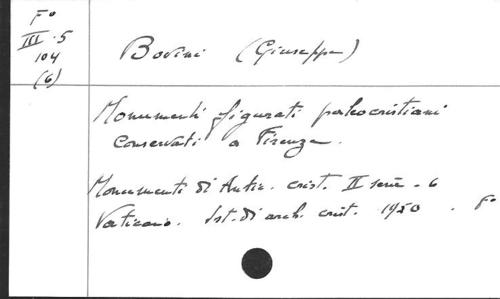 Fo
III.5
104
(6)
Bovini (Giuseppe)
Monumenti figurati paleocristiani
conservati a Firenze.
Monumenti di Antic. crist. II serie - 6
Vaticano. Ist. di arch. crist. 1950. Fo